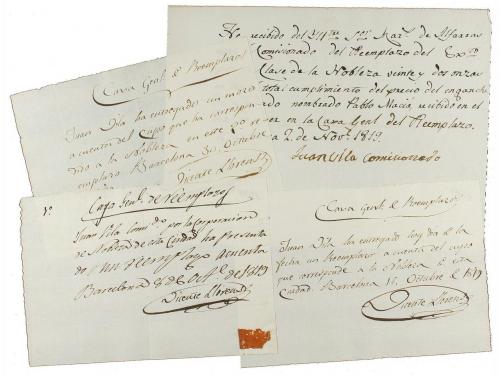 He recibido del Sor. Marqs. de Alfarras
Comicionado del Reemplazo del Exmo.
Clase de la Nobleza veinte y dos onzas
total cumplimiento del precio del engancha
do nombrado Pablo Maciá recibido en el
en la Caxa Genl. del Reemplazo.
a 2 de Novre. 1819.
Juan Vila Comicionado
Caxa Genl. de Reemplazos
Juan Vila ha entregado un
a cuenta del Cupo que ha correspon
dido a la Nobleza en este
emplazo Barcelona 30 Octubre
Vicente Llorens
Caxa Genl. de reemplazos
Juan Vila Comisdo. por la Corporacion
de Nobleza de esta Ciudad ha presenta
do un reemplazo a cuenta
Barcelona 8 de Octe. de 1819
Vicente Llorens
Caxa Genl. de Reemplazos
Juan Vila ha entregado hoy dia de la
fecha un Reemplazo a cuenta del cupo
que corresponde a la Nobleza de esta
Ciudad. Barcelona 16 Octubre de 1819
Vicente Llorens